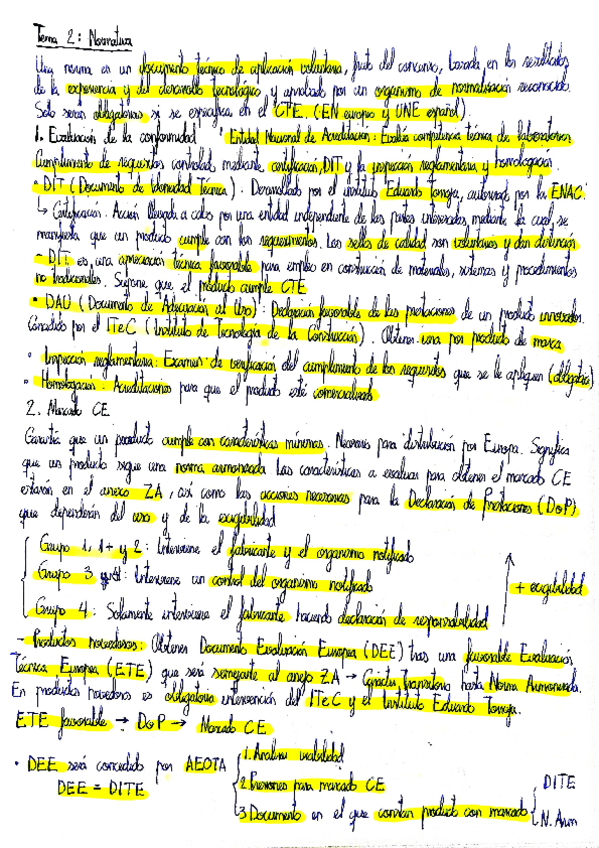 Tema 2: Normativa
Una norma es un documento técnico de aplicación voluntaria, fruto del consenso, basada en los resultados
de la experiencia y del desarrollo tecnológico y aprobado por un organismo de normalización reconocido.
Solo serán obligatorias si se especifica en el CTE. (EN europeo y UNE español)
1. Evaluación de la conformidad Entidad Nacional de Acreditación: Evalúa competencia técnica de laboratorios
Cumplimiento de requisitos controlado mediante certificación, DIT y la inspección reglamentaria y homologación
- DIT (Documento de Idoneidad Técnica). Desarrollado por el instituto Eduardo Torroja, autorizado por la ENAC.
↳ Certificación. Acción llevada a cabo por una entidad independiente de las partes interesadas mediante la cual se
manifiesta que un producto cumple con los requerimientos. Los sellos de calidad son voluntarios y dan distinción
- DIT es una apreciación técnica favorable para empleo en construcción de materiales, sistemas y procedimientos
no tradicionales. Supone que el producto cumple CTE
• DAU (Documento de Adecuación al Uso): Declaración favorable de las prestaciones de un producto innovador.
Concedido por el ITeC (Instituto de Tecnología de la Construcción). Obtienen una por producto de marca
• Inspección reglamentaria: Examen de verificación del cumplimiento de los requisitos que se le apliquen (obligatoria)
• Homologación. Acreditaciones para que el producto esté comercializado
2. Marcado CE
Garantía que un producto cumple con características mínimas. Necesario para distribución por Europa. Significa
que un producto sigue una norma armonizada. Las características a evaluar para obtener el marcado CE
estarán en el anexo ZA, así como las acciones necesarias para la Declaración de Prestaciones (DoP)
que dependerán del uso y de la exigibilidad
Grupo 1, 1+ y 2: Interviene el fabricante y el organismo notificado
Grupo 3: Interviene un control del organismo notificado
+ exigibilidad
Grupo 4: Solamente interviene el fabricante haciendo declaración de responsabilidad
- Productos novedosos: Obtienen Documento Evaluación Europea (DEE) tras una favorable Evaluación
Técnica Europea (ETE) que será semejante al anejo ZA → Carácter transitorio hasta Norma Armonizada.
En productos novedosos es obligatoria intervención del ITeC y el Instituto Eduardo Torroja.
ETE favorable → DoP → Marcado CE
• DEE será concedido por AEOTA
DEE = DITE
1. Analiza viabilidad
2. Previsiones para marcado CE
3 Documento en el que constan producto con marcado
DITE
N. Arm